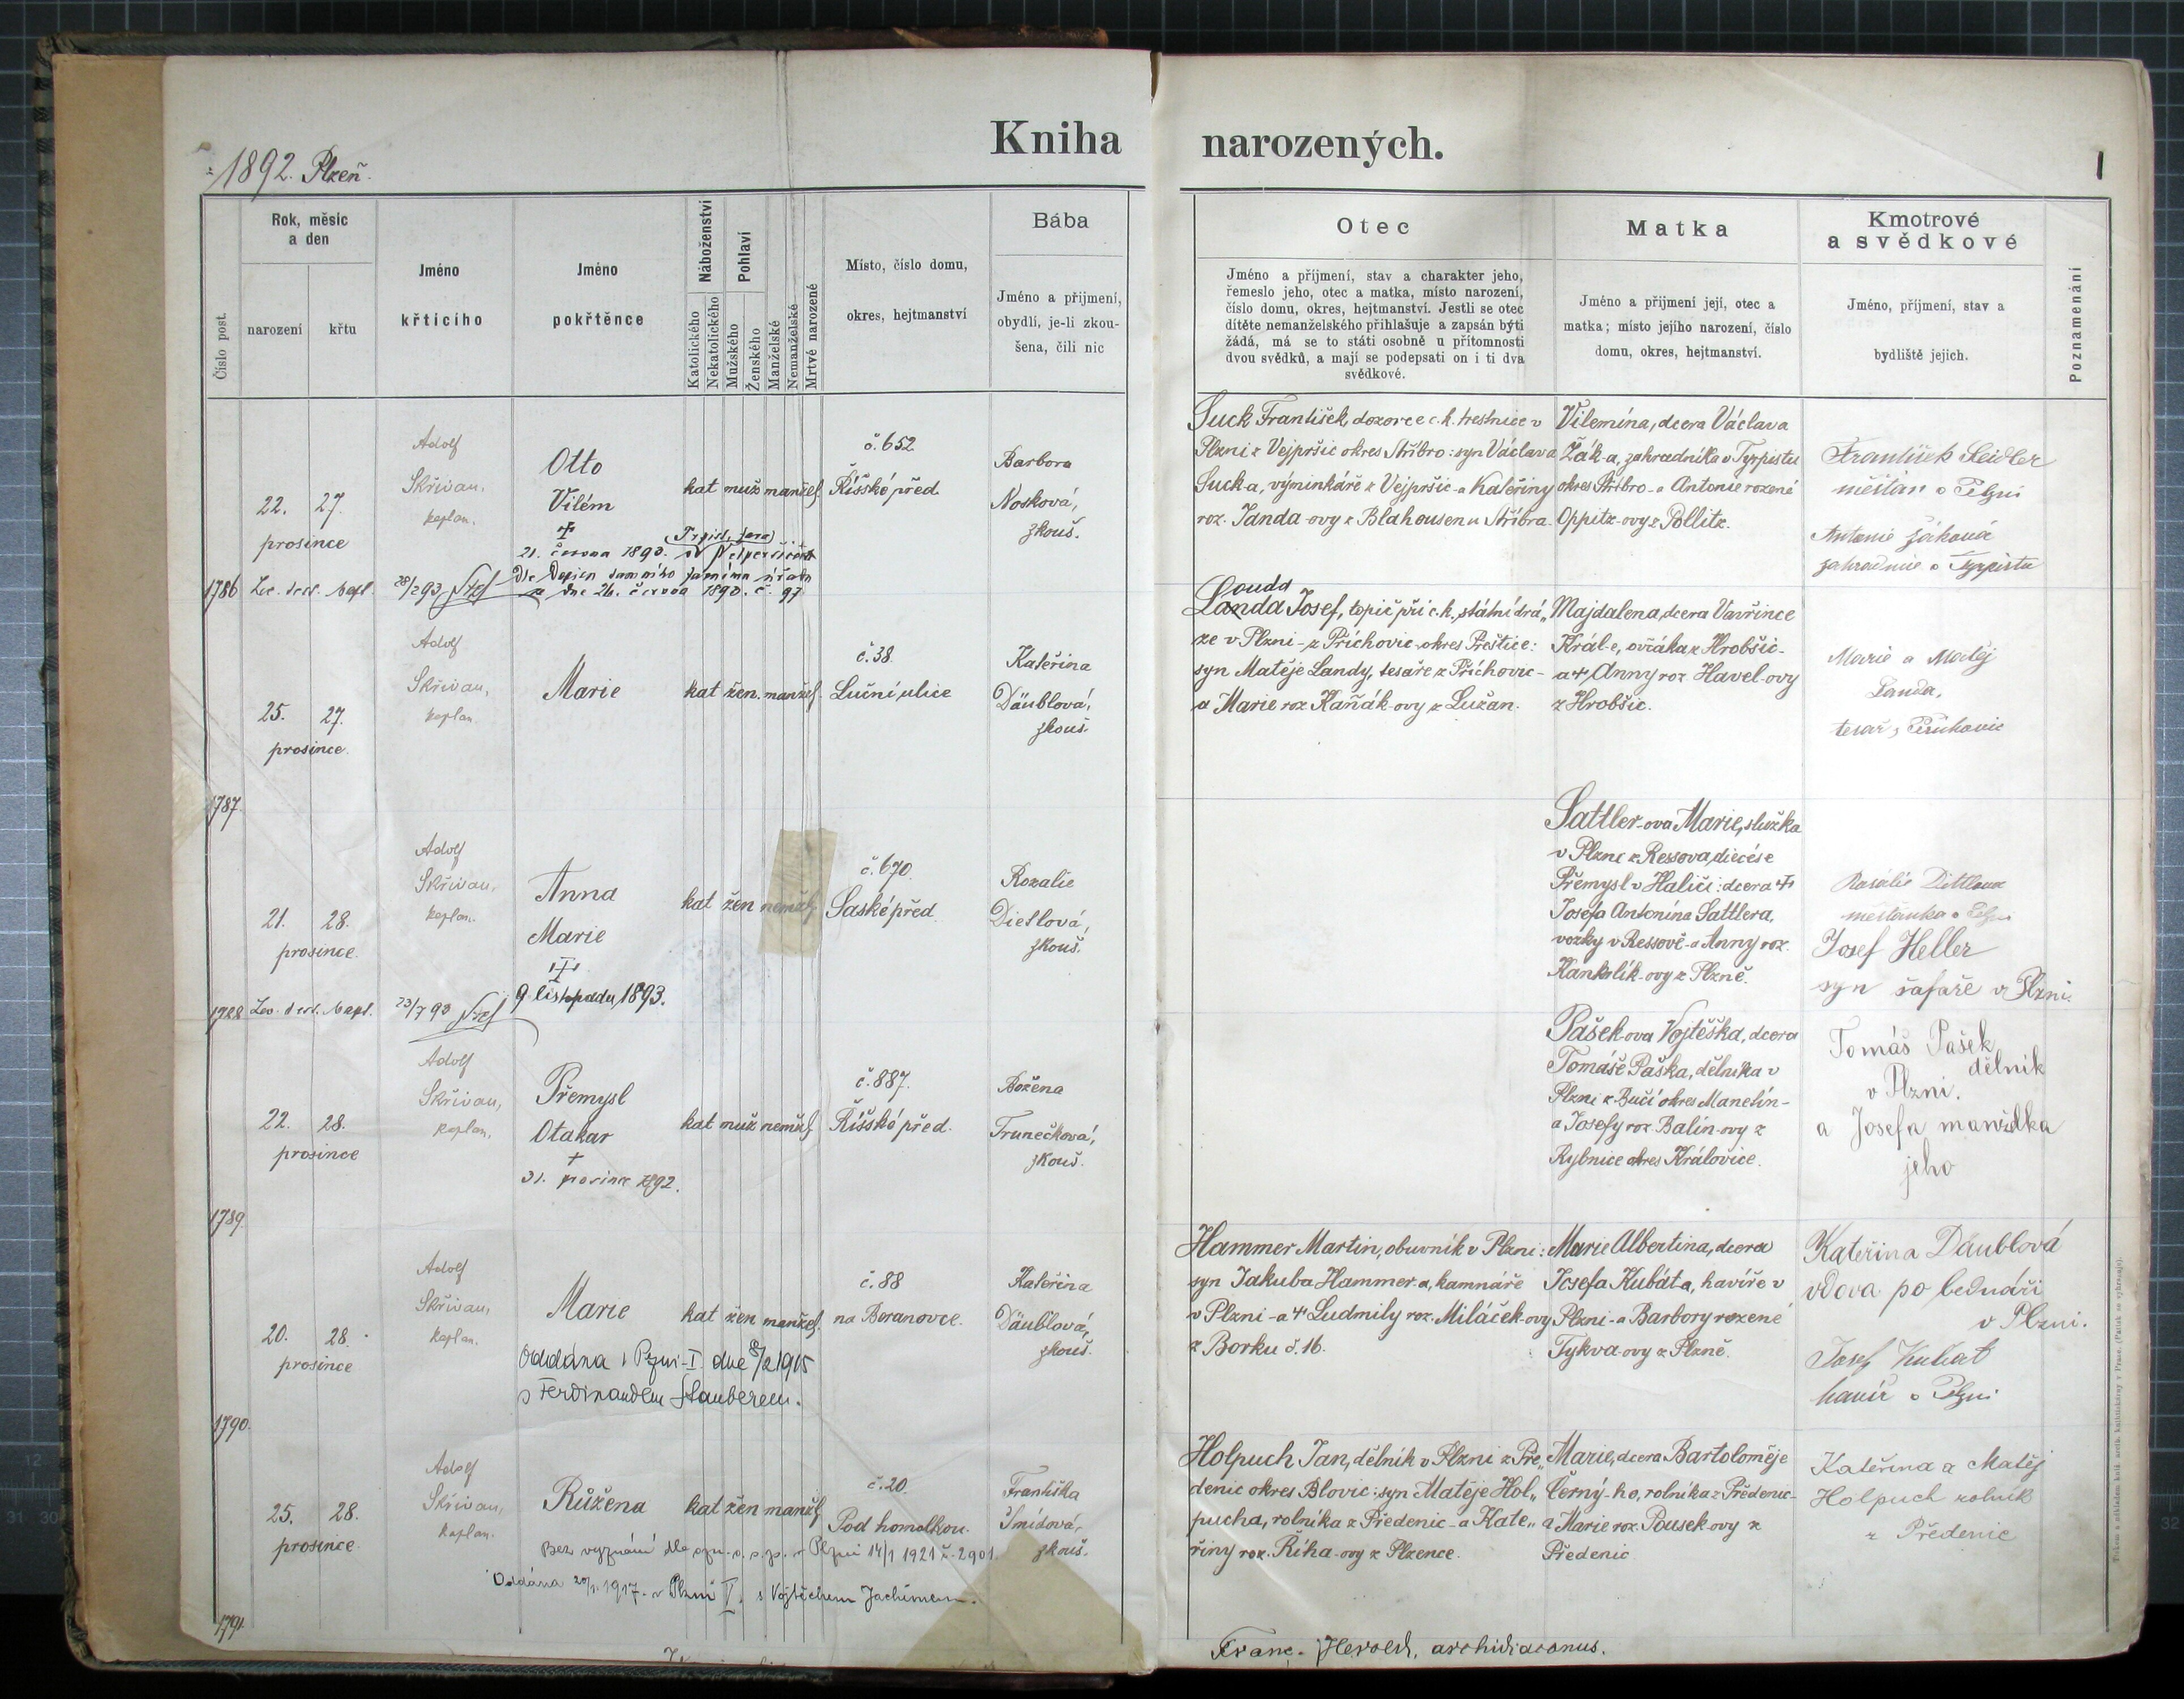 Kniha narozených.
1892. Plzeň.
1
Číslo post.
Rok, měsíc
a den
narození
křtu
Jméno
křticího
Jméno
pokřtěnce
Náboženství
Katolického
Nekatolického
Pohlaví
Mužského
Ženského
Manželské
Nemanželské
Mrtvě narozené
Místo, číslo domu,
okres, hejtmanství
Bába
Jméno a přijmení,
obydlí, je-li zkou-
šena, čili nic
Otec
Jméno a příjmení, stav a charakter jeho,
řemeslo jeho, otec a matka, místo narození,
číslo domu, okres, hejtmanství. Jestli se otec
dítěte nemanželského přihlašuje a zapsán býti
žádá, má se to státi osobně u přítomnosti
dvou svědků, a mají se podepsati on i ti dva
svědkové.
Matka
Jméno a příjmení její, otec a
matka; místo jejího narození, číslo
domu, okres, hejtmanství.
Kmotrové
a svědkové
Jméno, příjmení, stav a
bydliště jejich.
Poznamenání
1786
22. 27.
prosince
Adolf
Skřivan,
kaplan.
Otto
Vilém
21. června 1893.
a dne 26. června 1893. č. 97
28/2 93
kat muž manžel
č. 652
Říšské před.
Barbora
Nosková,
zkouš.
Suck František, dozorce c.k. trestnice v
Plzni z Vejpršic okres Stříbro: syn Václava
Suck-a, výminkáře z Vejpršic-a Kateřiny
roz. Janda-ovy z Blahousen u Stříbra.
Vilemína, dcera Václava
Žák-a, zahradníka v Tyrpistu
okres Stříbro-a Antonie rozené
Oppitz-ovy z Pollitz.
František Seidler
měštan v Plzni
Antonie Žáková
zahradnice v Tyrpistu
1787.
25. 27.
prosince.
Adolf
Skřivan,
kaplan.
Marie
kat žen. manžel.
č. 38.
Luční ulice
Kateřina
Däublová,
zkouš.
Louda
Landa Josef, topič při c.k. státní drá„
ze v Plzni-z Příchovic-okres Přeštice:
syn Matěje Landy, tesaře z Příchovic-
a Marie roz Kaňák-ovy z Lužan.
Majdalena, dcera Vavřince
Král-e, ovčáka z Hrobšic-
a + Anny roz. Havel-ovy
z Hrobšic.
Marie a Matěj
Landa,
tesař z Příchovic
1788
21. 28.
prosince.
Adolf
Skřivan,
kaplan.
Anna
Marie
9. listopadu, 1893.
23/7 93
kat žen nemžel
č. 670.
Saské před.
Rozalie
Dietlová,
zkouš.
Sattler-ova Marie, služka
v Plzni z Ressova, diecése
Přemysl v Haliči: dcera +
Josefa Antonína Sattlera,
vozky v Ressově-a Anny roz.
Kankolík-ovy z Plzně.
Rosalie Dittlova
měštanka v Plzni
Josef Heller
syn šafaře v Plzni.
1789.
22. 28.
prosince
Adolf
Skřivan,
kaplan.
Přemysl
Otakar
+
31. prosince 1892.
kat muž nemžel
č. 887.
Říšské před.
Božena
Trunečková,
zkouš.
Pašek-ova Vojtěška, dcera
Tomáše Paška, dělníka v
Plzni z Bučí okres Manetín-
a Josefy roz. Balín-ovy z
Rybnice okres Královice.
Tomáš Pašek
dělník
v Plzni.
a Josefa manželka
jeho
1790.
20. 28.
prosince
Adolf
Skřivan,
kaplan.
Marie
kat žen manžel.
Oddána v Plzni-I. dne 8/2 1915
s Ferdinandem Stauberem.
č. 88
na Boranovce.
Kateřina
Däublová,
zkouš.
Hammer Martin, obuvník v Plzni:
syn Jakuba Hammer-a, kamnáře
v Plzni-a + Ludmily roz. Miláček-ovy
z Borku č. 16.
Marie Albertina, dcera
Josefa Kubát-a, havíře v
Plzni-a Barbory rozené
Tykva-ovy z Plzně.
Kateřina Däublová
vdova po bednáři
v Plzni.
Josef Kubat
havíř v Plzni
1791.
25. 28.
prosince
Adolf
Skřivan,
kaplan.
Růžena
kat žen manžel
Bez vyznání dle ozn. o. s. p. v Plzni 14/1 1921 č. 2901.
Oddána 20/1. 1917. v Plzni V. s Vojtěchem Jachimem.
č. 20.
Pod homolkou.
Františka
Šmídová,
zkouš.
Holpuch Jan, dělník v Plzni z Pře„
denic okres Blovic: syn Matěje Hol„
pucha, rolníka z Předenic-a Kate„
řiny roz. Říha-ovy z Plzence.
Marie, dcera Bartoloměje
Černý-ho, rolníka z Předenic-
a Marie roz. Pousek-ovy z
Předenic
Kateřina a Matěj
Holpuch rolník
z Předenic
Franc. Herold, archidiaconus.